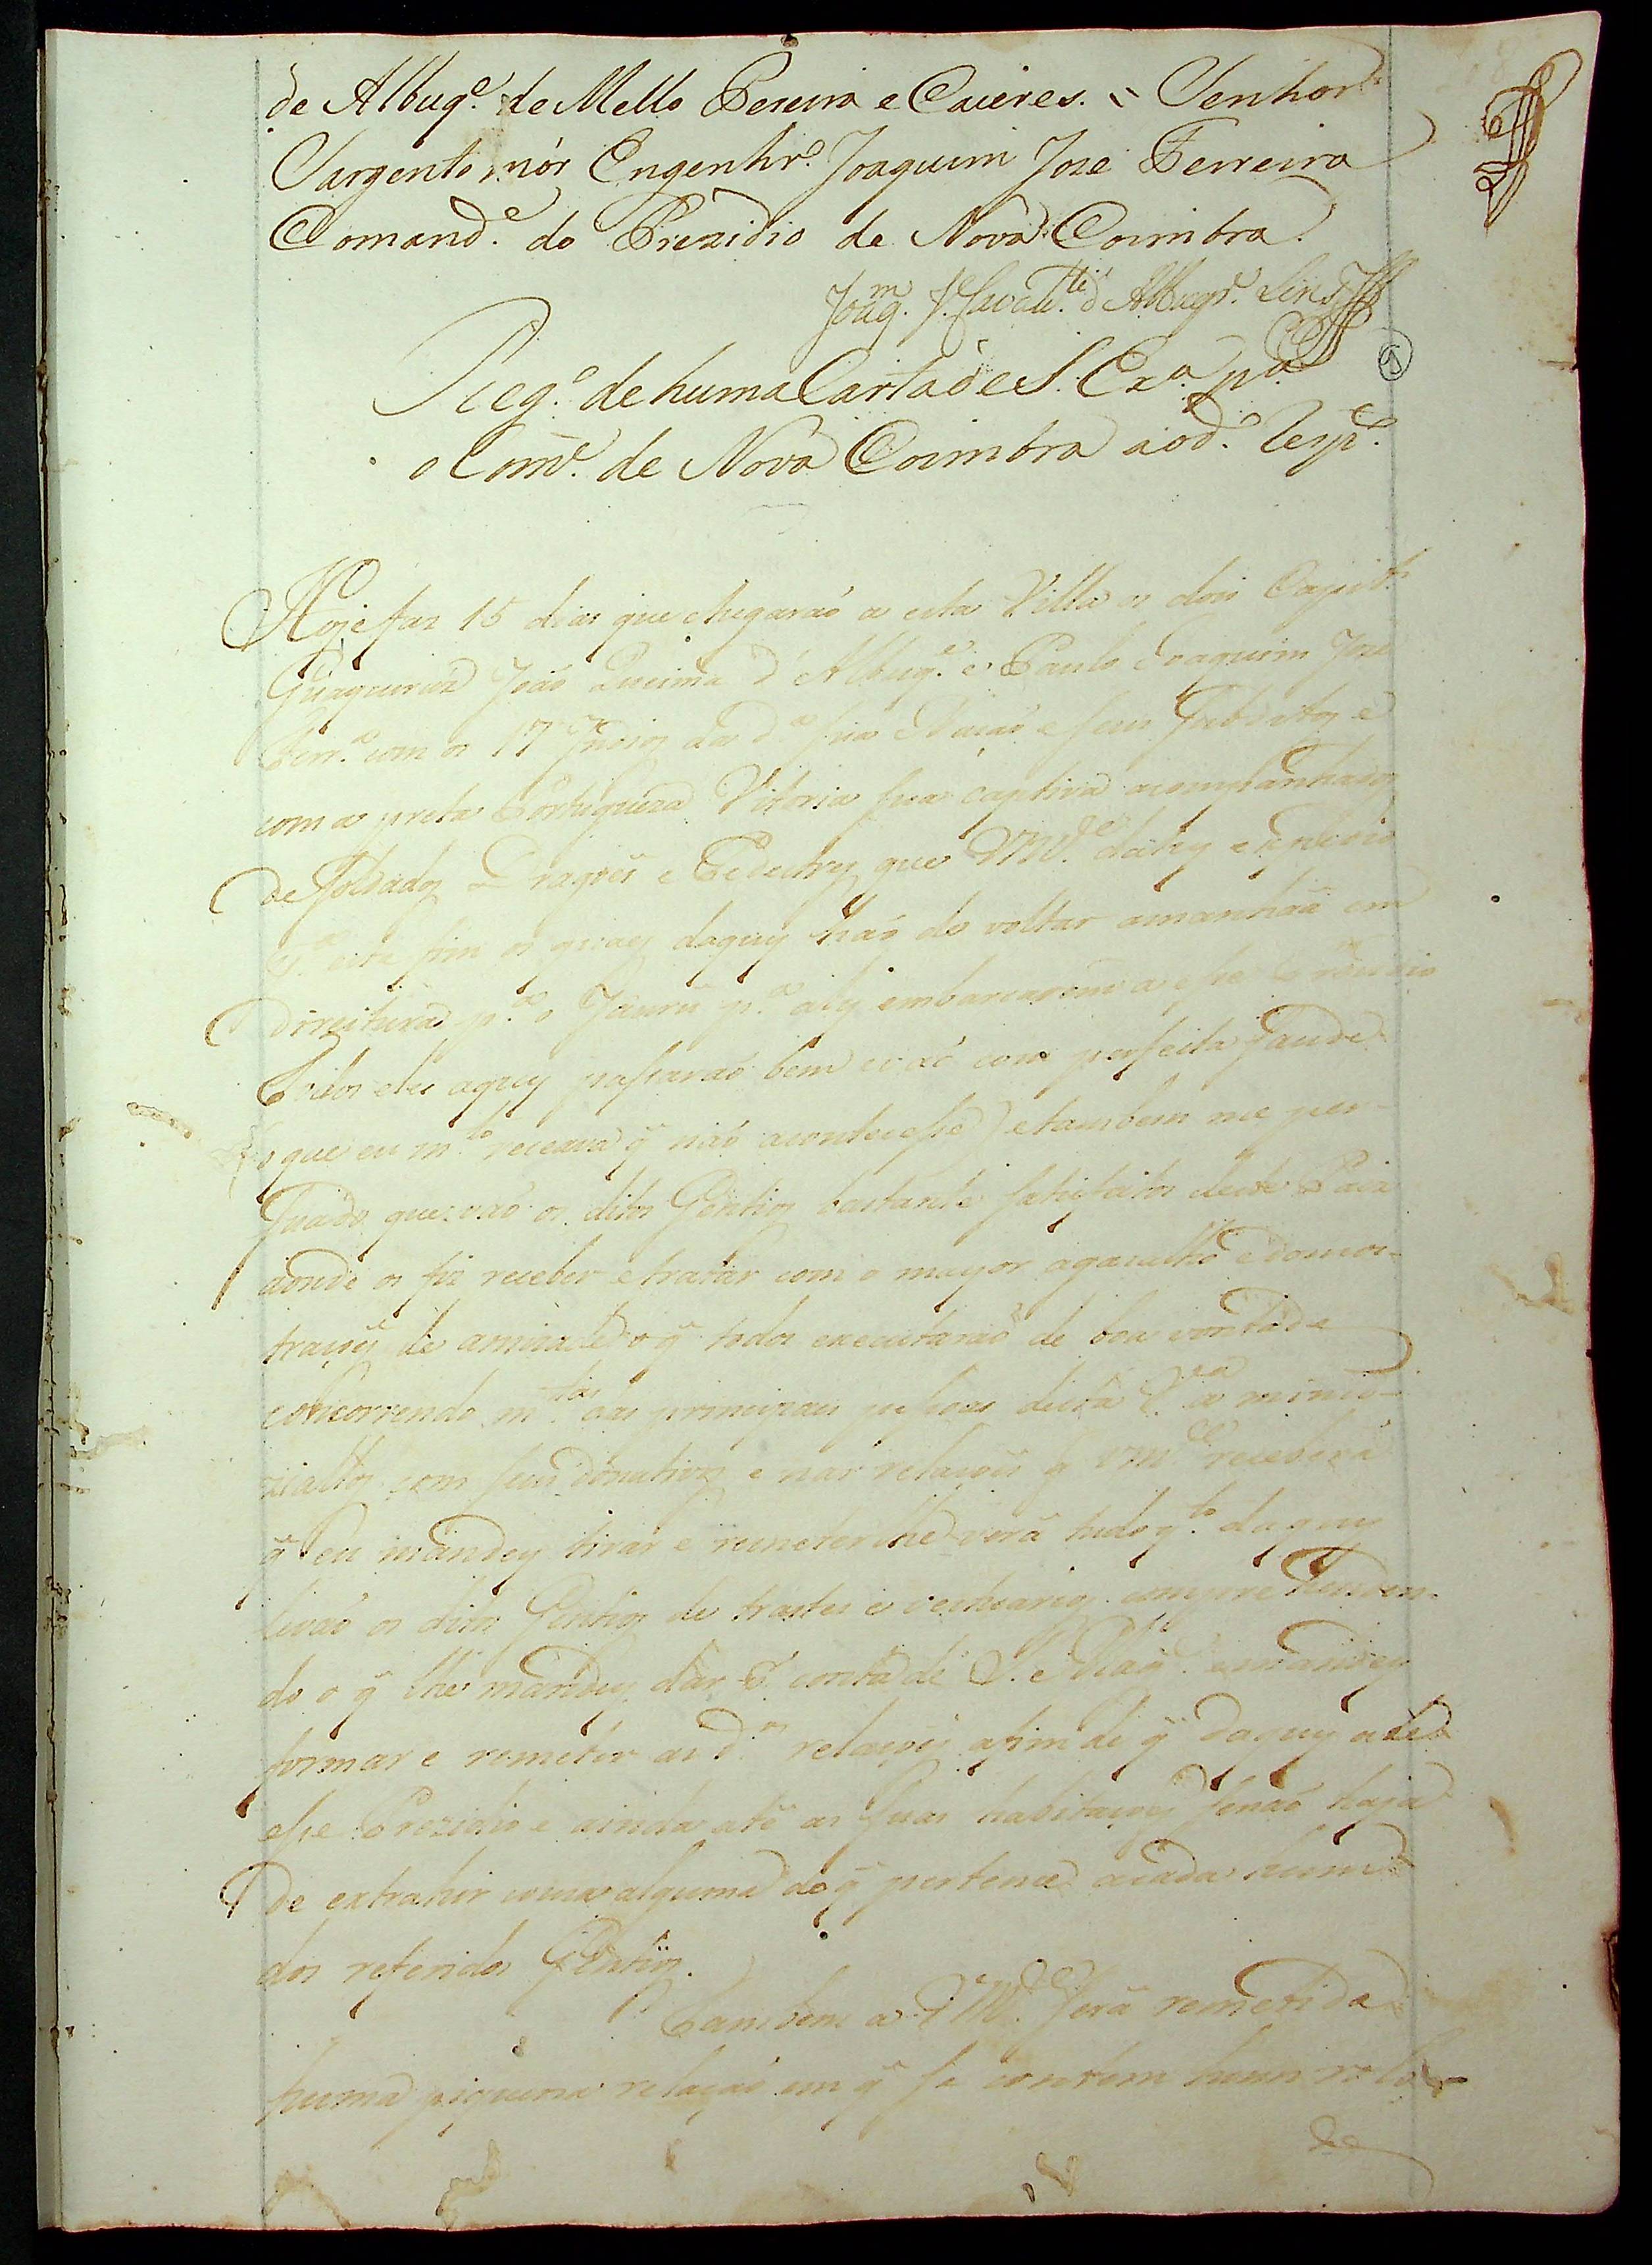 de Albuq.e de Mello Pereira e Caceres. = Senhor
Sargento mór Engenhr.o Joaquim Joze Ferreira
Comand.e do Prezidio de Nova Coimbra.
Joaq.m J.e Cavalc.te d'Albuqr.e Lins
Reg.o de huma Carta de S. Ex.a p.a
o Com.e de Nova Coimbra aod.o resp.o
Hoje faz 15 dias que chegaraõ a esta Villa os dois Capit.s
Guaycuruz João Queima d'Albuq.e e Paulo Joaquim Joze
Ferr.a com os 17 Indios da d.a sua Naçaõ e seus Subditos e
com a preta Portugueza Vitoria sua captiva acompanhados
de Soldados Dragoẽs e Pedestres que VM.ce dahy
p.a este fim os quaes daquy haõ de voltar amanhaã em
direitura p.a o Jaurú p.a aly embarcarem a esse Prezidio
Todos eles aquy passaraõ bem e vaõ com perfeita saude
(o que eu m.to receava q̃ naõ acontecesse) e tambem me per-
suado que vaõ os ditos Gentios bastante satisfeitos deste Paiz
aonde os fiz receber e tratar com o mayor agazalho e demons-
traçoẽs de amizade o q̃ todos executaraõ de boa vontade
concorrendo m.tas das principaes pessoas desta V.a a mimo-
zialos com seus donativos e nas relaçoẽs q̃ VM.ce receberá
q̃ eu mandey tirar e remeterlhe verá tudo q.to daquy
levaõ os ditos Gentios de trastes e vestuarios comprehenden-
do o q̃ lhe mandey dar por conta de S. Mag.e e mandey
formar e remeter as d.as relaçoẽs afim de q̃ daquy athe
esse Prezidio e ainda até as suas habitaçoẽs senaõ haja
de extrahir couza alguma do q̃ pertence acada hum
dos referidos Gentios.
Tambem a VM.ce será remetida
huma piquena relaçaõ em q̃ se contem hum rolo
de